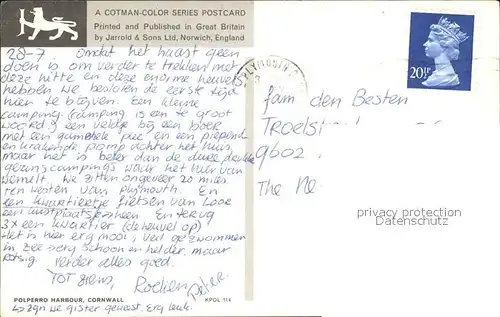 A COTMAN-COLOR SERIES POSTCARD
Printed and Published in Great Britain
by Jarrold & Sons Ltd, Norwich, England
28-7 omdat het haast geen
doen is om verder te trekken met
deze hitte en deze enorme heuvels
hebben we besloten de eerste tijd
hier te blijven. Een kleine
camping (camping is een te groot
woord) een veldje bij een boer
met een plee en een piepend
en krakende pomp achter het huis,
maar het is beter dan de dure drukke
gezinscampings waar het hier van
wemelt. We zitten ongeveer 20 miles
ten westen van Plymouth. En
een kwartiertje fietsen van Looe
een kustplaatsje heen en terug
3x een kwartier (de heuvel op)
Het is hier erg mooi, veel gezwommen
in zee erg schoon en helder, maar
rotsig. Verder alles goed.
Tot ziens,
Peter.
POLPERRO HARBOUR, CORNWALL
KPOL 114
↳ zijn we gister geweest. Erg leuk.
PLYMOUTH
20½P
fam den Besten
Troelst
9602
The Ne
privacy protection
watermark